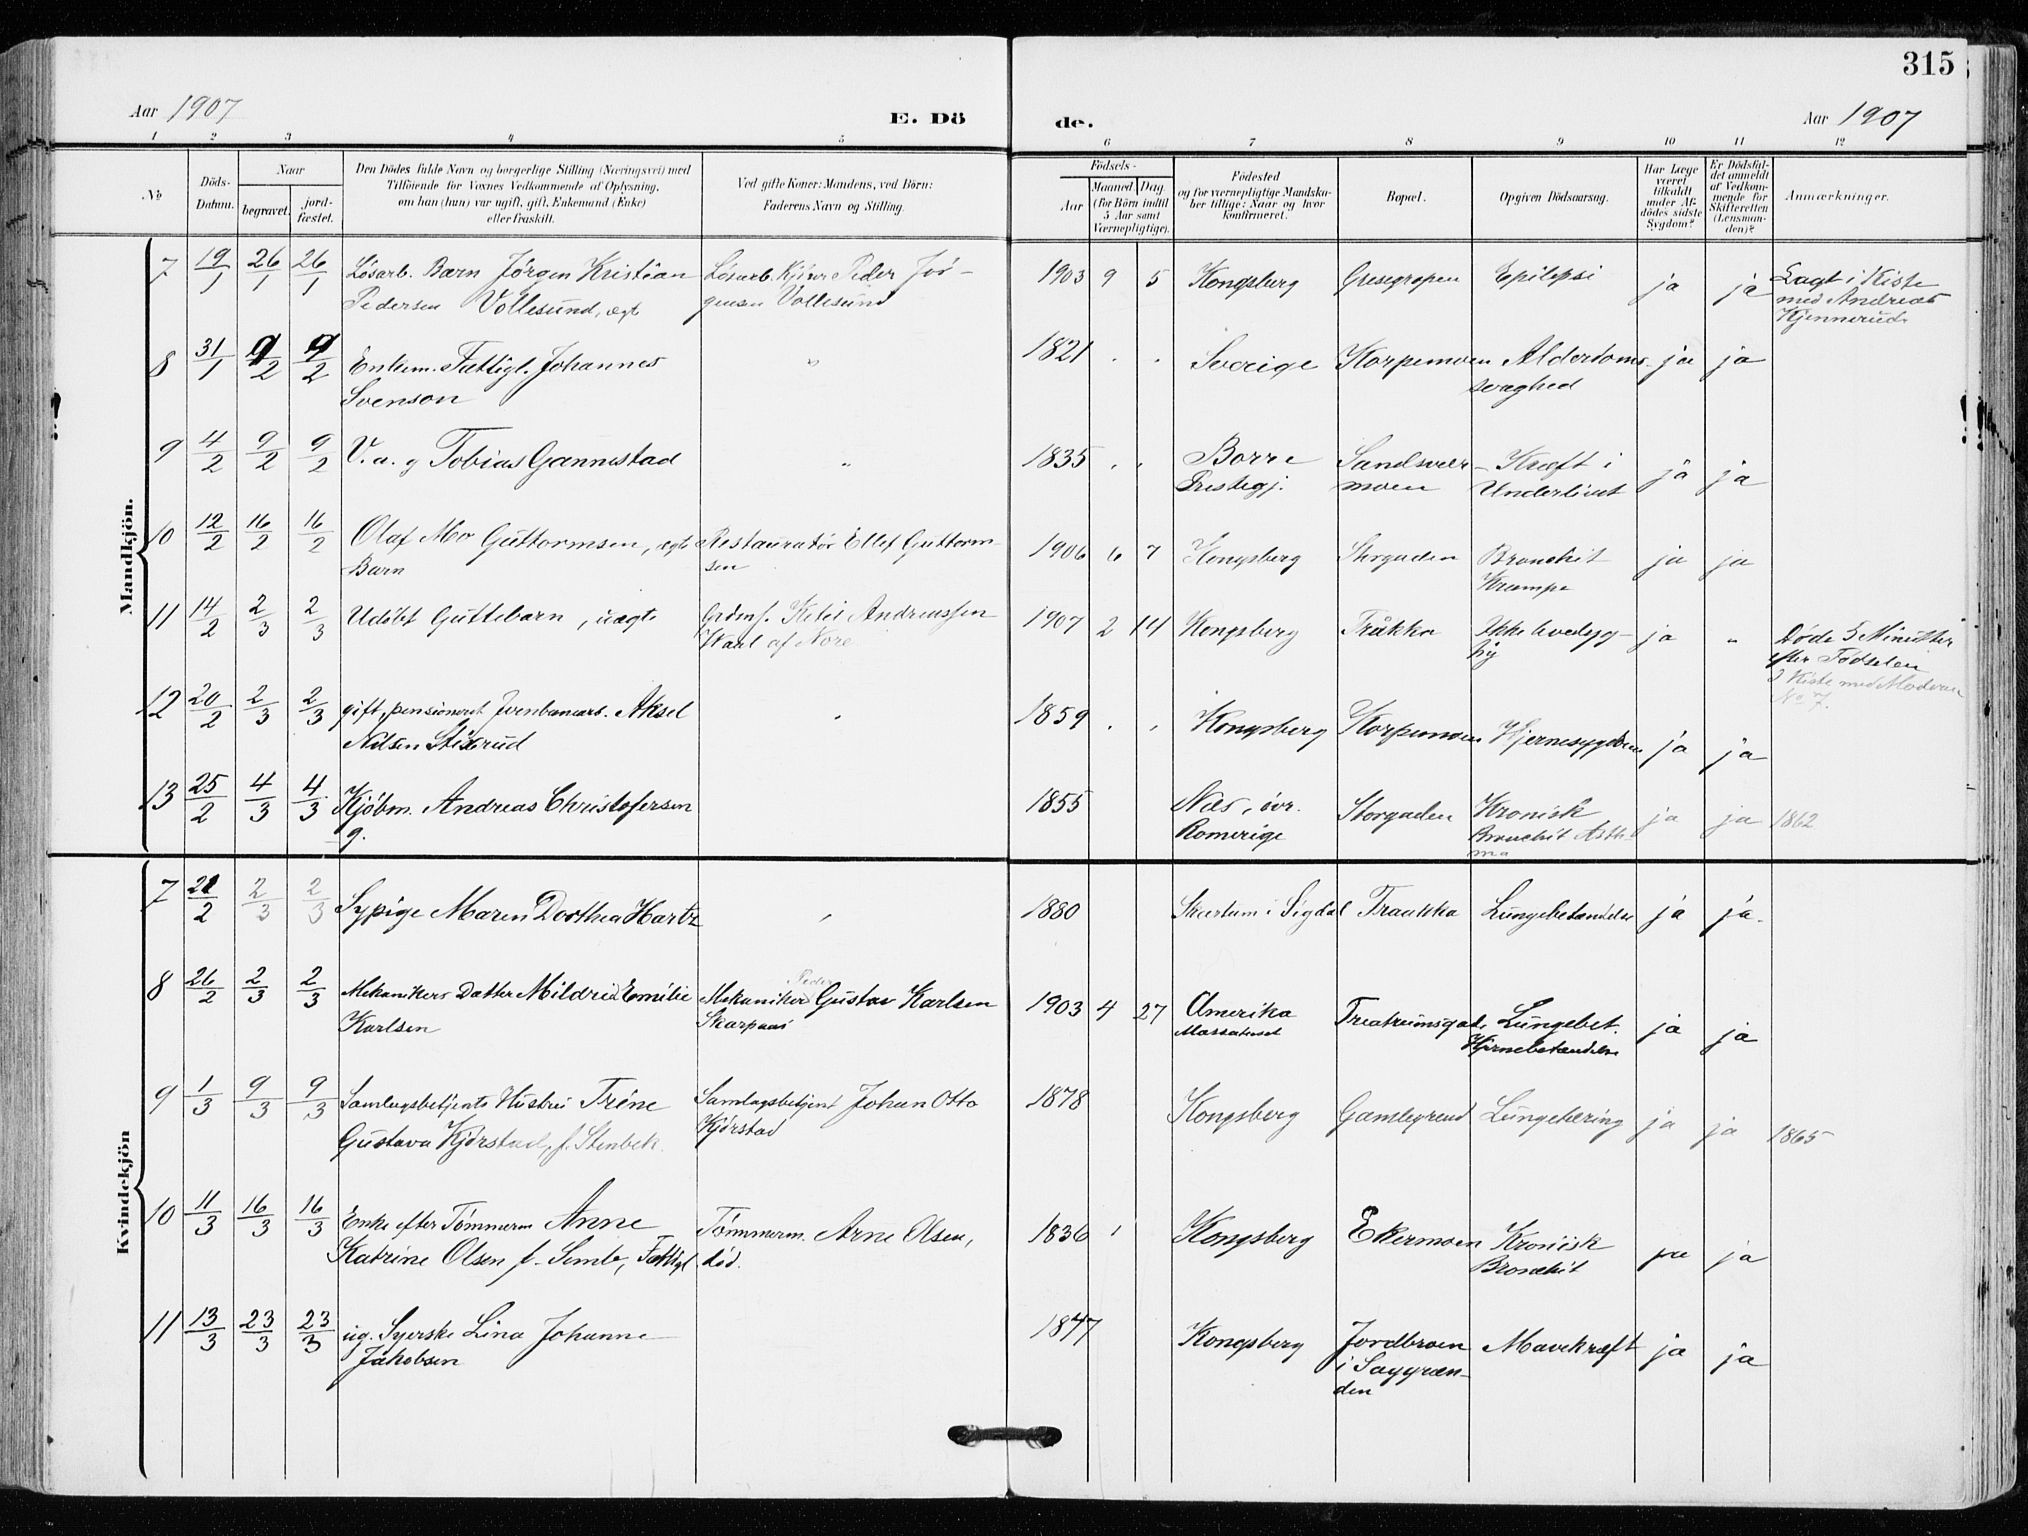 315
Aar 1907
E. Dö
de.
Aar 1907
1 2 3 4 5 6 7 8 9 10 11 12
No
Döds-
Datum.
Naar
begravet.
jord-
fæstet.
Den Dödes fulde Navn og borgerlige Stilling (Næringsvei) med
Tilföiende for Voxnes Vedkommende af Oplysning,
om han (hun) var ugift, gift, Enkemand (Enke)
eller fraskilt.
Ved gifte Koner: Mandens, ved Börn:
Faderens Navn og Stilling.
Födsels-
Aar
Maaned Dag
(for Börn indtil
5 Aar samt
Værnepligtige).
Födested
og for værnepligtige Mandska-
ber tillige: Naar og hvor
konfirmeret.
Bopæl.
Opgiven Dödsaarsag.
Har Læge
været
tilkaldt
under Af-
dödes sidste
Sygdom?
Er Dödsfal-
det anmeldt
af Vedkom-
mende for
Skifteretten
(Lensman-
den)?
Anmærkninger.
Mandkjön.
7 19/1 26/1 26/1 Løsarb. Barn Jörgen Kristian Løsarb. Peder Jör- 1903 9 5 Kongsberg Gresegropen Epilepsi ja ja Lagt i Kiste
Pedersen Vollesund, ægte gensen Vollesund med Andreas
Kjennerud.
8 31/1 9/2 9/2 Enkem. Fattigl. Johannes " 1821 . . Sverige Korpemoen Alderdoms- ja ja
Svenson svaghed
9 4/2 9/2 9/2 V. a. g Tobias Gannestad " 1835 . . Borre Sandsvær- Kræft i ja ja
Prestegj. moen Underlivet
10 12/2 16/2 16/2 Olaf Mo Guttormsen, ægte Restauratör Ellef Guttorm- 1906 6 7 Kongsberg Storgaden Bronchit ja ja
Barn sen Krampe
11 14/2 2/3 2/3 Udøbt Guttebarn, uægte Grdmf. Ketil Andreassen 1907 2 14 Kongsberg Tråkka Ikke livedyg- ja " Døde 5 Minutter
af Nore tig efter Fødselen
I Kiste med Moderen
No 7.
12 20/2 2/3 2/3 gift, pensioneret Jernbanearb. Aksel " 1859 . . Kongsberg Korpemoen Hjernesygdom ja ja
Nilsen
13 25/2 4/3 4/3 Kjøbm. Andreas Christofersen 1855 Næs, övr. Storgaden Kronisk ja ja 1862
g. Romerige Bronchit Asth-
ma
Kvindekjön
7 21/2 2/3 2/3 Sypige Maren Dorthea Hartz " 1880 i Sigdal Traakka Lungebetændelse ja ja.
8 26/2 2/3 2/3 Mekanikers Datter Mildrid Emilie Mekaniker Peder Gustav Karlsen 1903 4 27 Amerika Treatrumsgad. Lungebet. ja ja
Karlsen Skarpaas Hjernebetændelse
9 1/3 9/3 9/3 Samlagsbetjents Hustru Trine Samlagsbetjent Johan Otto 1878 Kongsberg Gamlegrend Lungetæring ja ja 1865
Gustava Kjörstad, f. Stenbek. Kjörstad
10 11/3 16/3 16/3 Enke efter Tømmerm Anne Tømmerm. Arne Olsen, 1836 ' Kongsberg Ekermoen Kronisk ja ja
Katrine Olsen f. Semb, Fattigl. död. Bronchit
11 13/3 23/3 23/3 ug. Syerske Lina Johanne 1847 Kongsberg Jordbroen Mavekræft ja ja
Jakobsen i Saggræn-
den